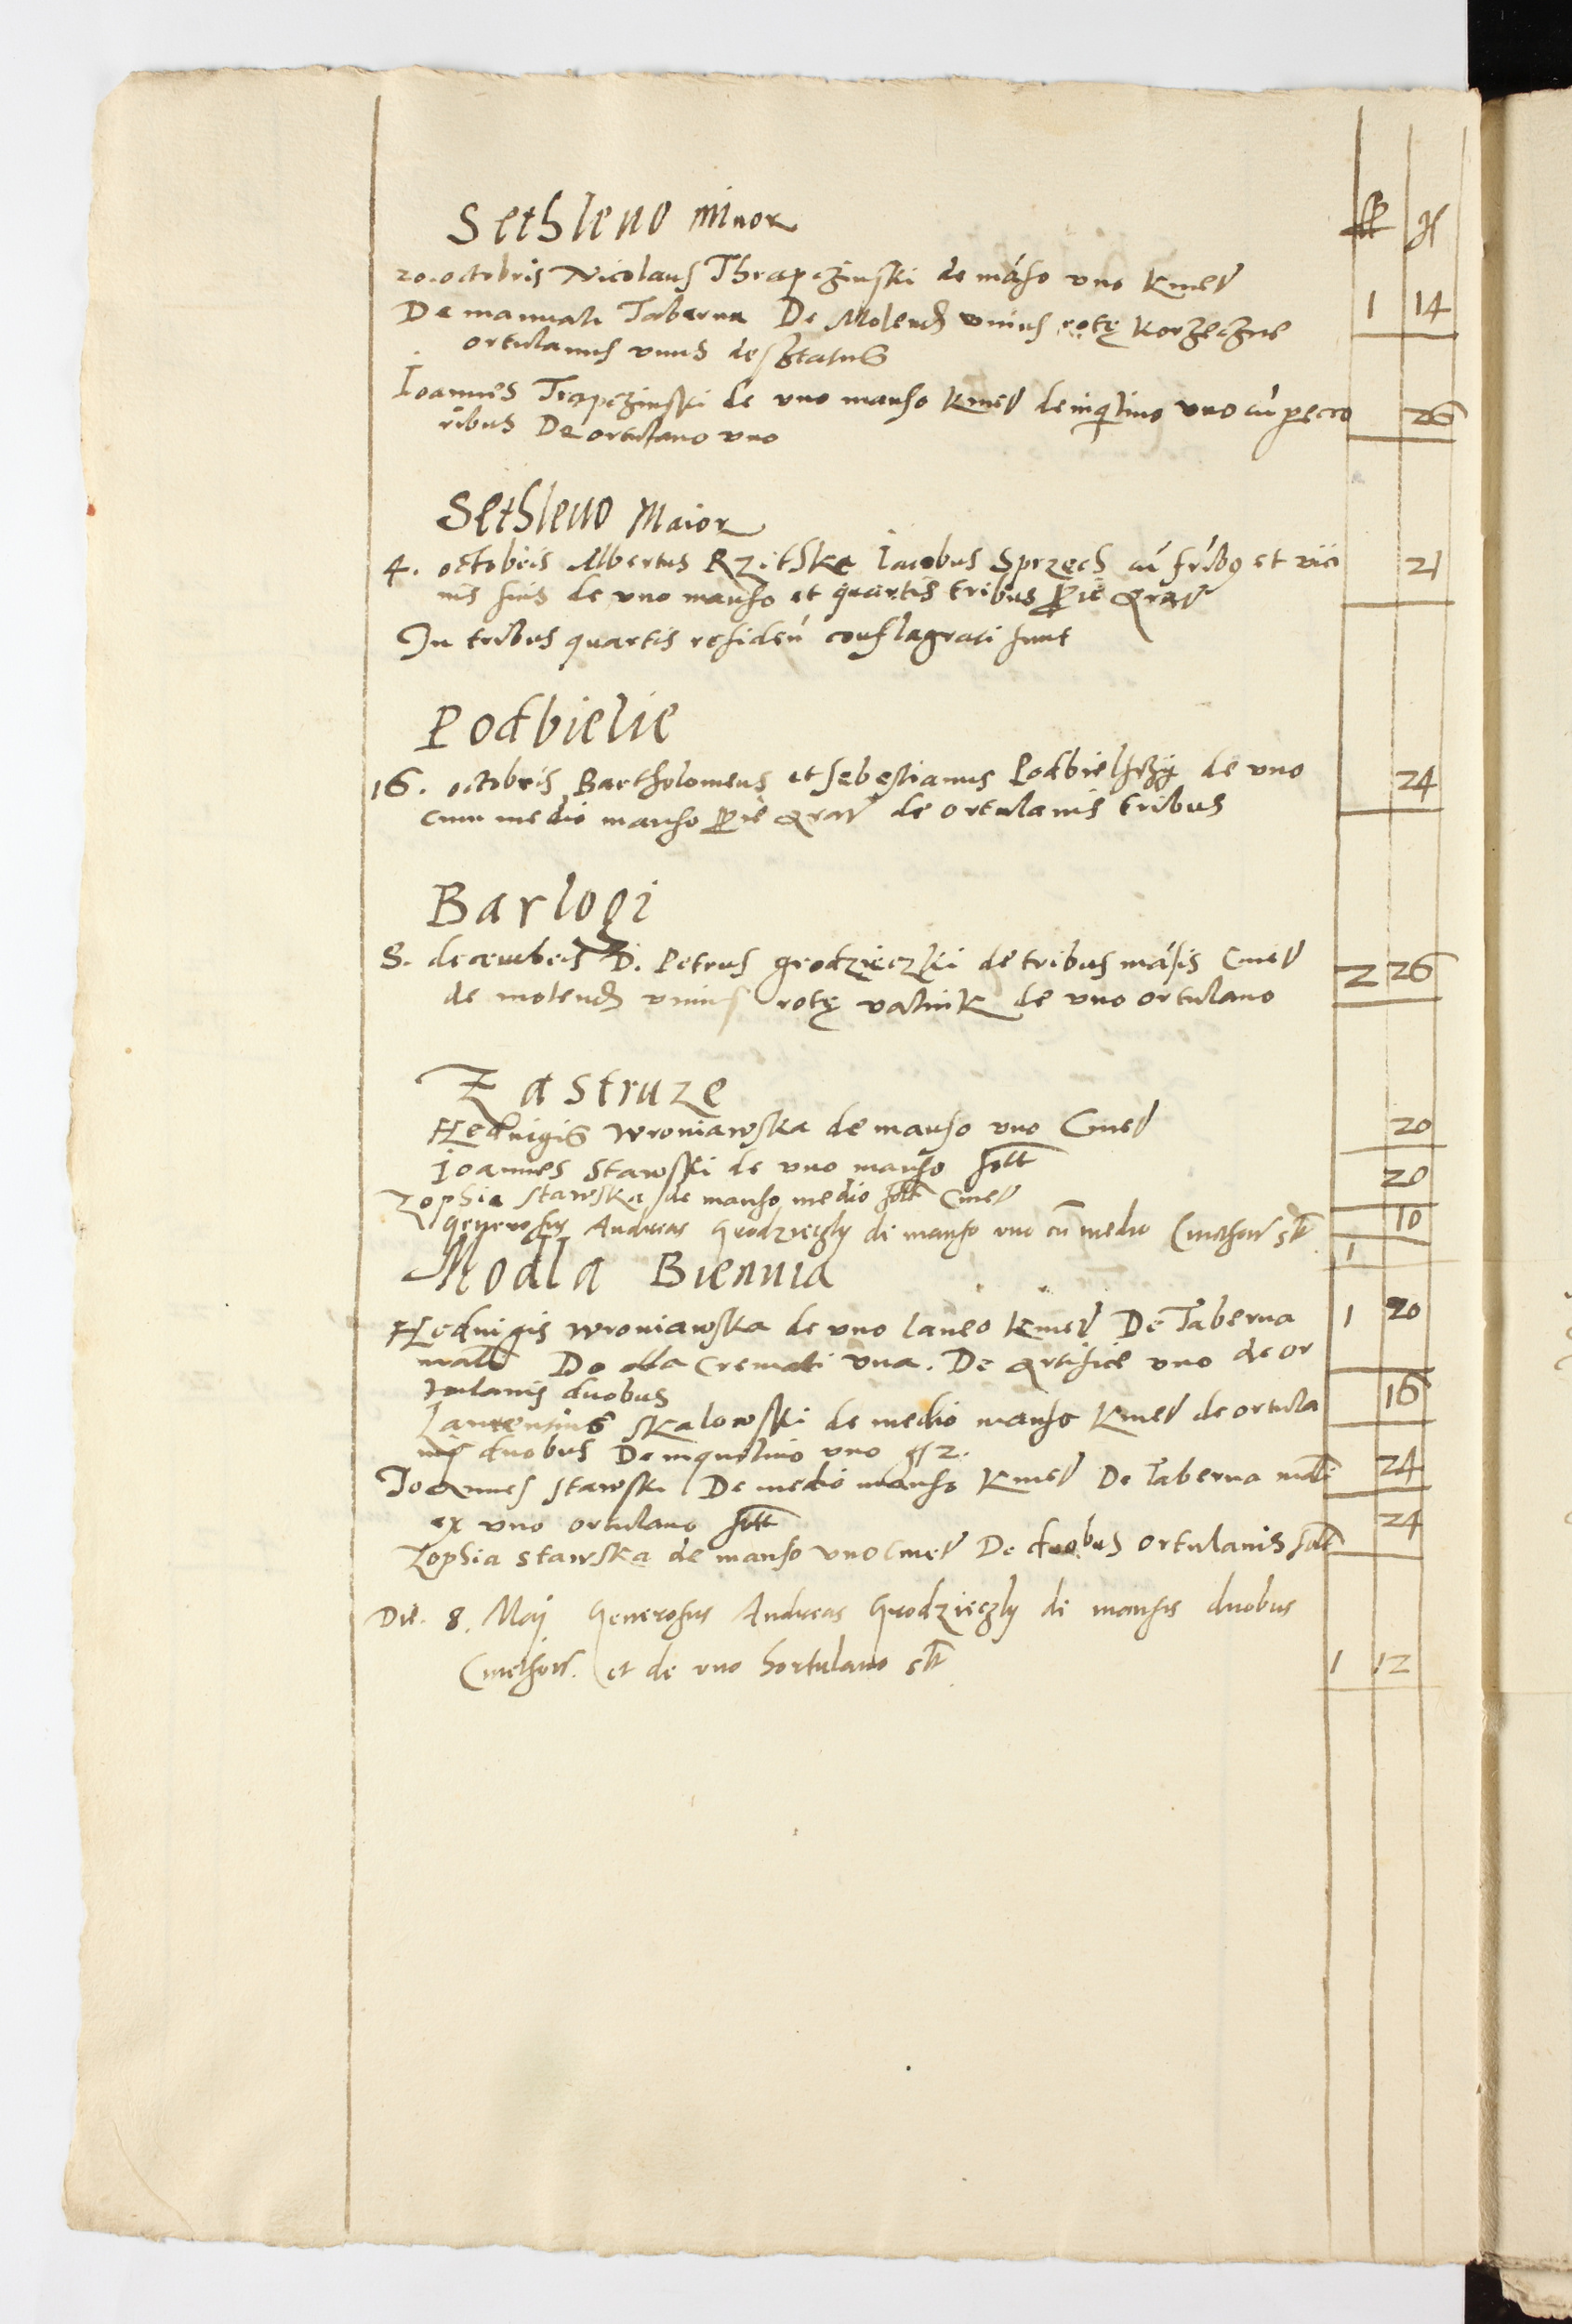 Sethlewo Minor
ff gs
20. octobris Nicolaus Thrapczinski de máso uno Kmet
De manuali Taberna De Molend unius rotę Korzeczne 1 14
ortulanus unus desertatus
Ioannes Trapczinski de uno manso Kmet de inqlino uno cú pecco 26
ribus De ortulano uno
Sethlewo Maior
4. octobris Albertus Rzitske Iacobus Sprzech cú fribus et vici 21
nis suis de uno manso et quartis tribus
In tribus quartis residen conflagrati sunt
Podbielie
16. octobris Bartholomeus et sebestianus Podbielsczy de uno 24
cum medio manso de ortulanis tribus
Barlogi
8. decembris D. Petrus grodzieczki de tribus másis Cmet 2 26
de molend unius rotę valnik de uno ortulano
Zastruze
Hednigis Wroniawska de manso uno Cmet 20
Ioannes Stawski de uno manso sott 20
Zophia Stawska de manso medio sott Cmet 10
Generosus Andreas Grodzieczky de manso uno cũ medio Cmethon st 1
Modla Biennia
Hednigis wroniawska de uno laneo Kmet De Taberna 1 20
De olla Cremati una. De artifice uno de or
tulanis duobus
Laurentius skalowski de medio manso Kmet de ortula 16
nis duobus De inquilino uno gs 2.
Ioannes stawski De medio manso Kmet De Taberna 24
ex uno ortulano sott
Zophia stawska de manso uno Cmet De duobus ortulanis sott 24
Die. 8. Maij Generosus Andreas Grodzieczky de mansis duobus
Cmethon. et de uno hortulano st 1 12